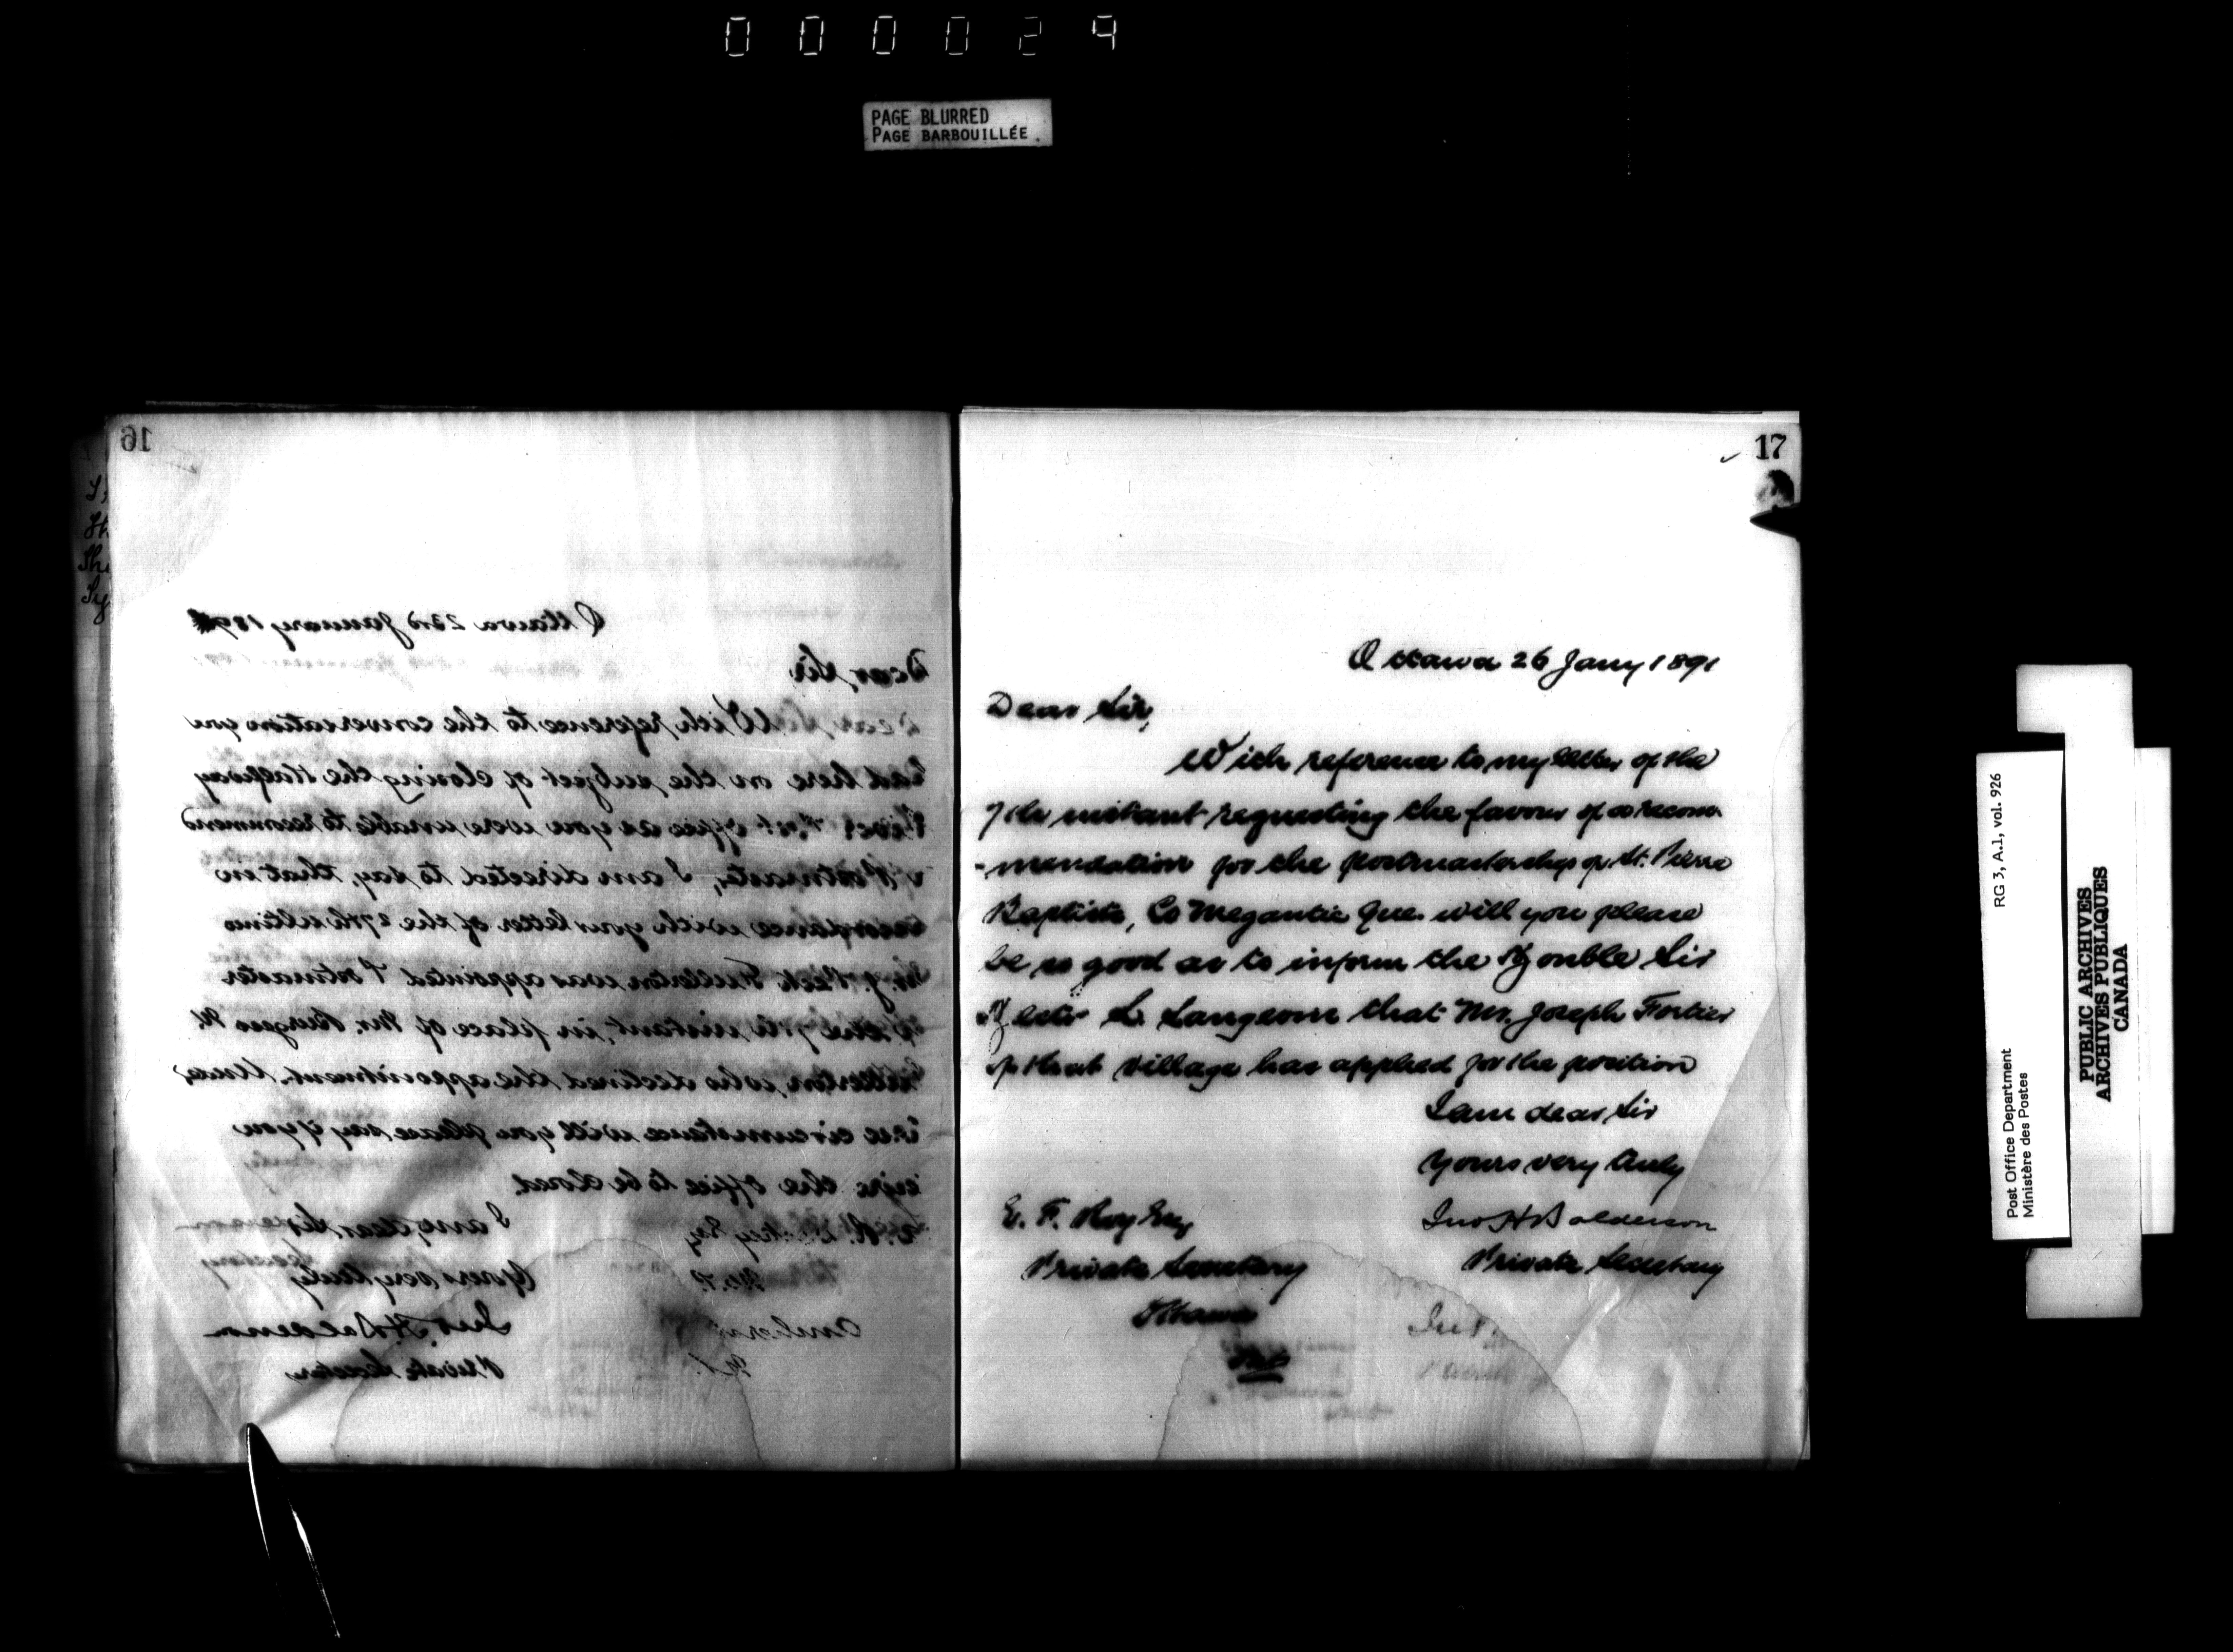 000024
PAGE BLURRED
PAGE BARBOUILLÉE
16
Ottawa 23rd January 189
Dear Sir
With reference to the conversation you
had here on the subject of closing the Halfway
River Post office as you were unable to recommend
a Postmaster, I am directed to say, that in
accordance with your letter of the 27th ultimo
Mr. J. Peck Fullerton was appointed Postmaster
the 7th instant, in place of Mr. Burgess
Fullerton, who declined the appointment. Under
circumstance will you please say if you
the office to be closed
I am, dear Sir
Yours very truly
Jno. H. Balderson
Private Secretary
Esq
M.P.
Amherst
N.S.
17
Ottawa 26 Jany 1891
Dear Sir,
With reference to my letter of the
7th instant requesting the favour of a recom
-mendation for the postmastership of St. Pierre
Baptiste, Co Megantic Que. will you please
be so good as to inform the Honble Sir
Hector L. Langevin that Mr. Joseph Fortier
of that village has applied for the position
I am dear Sir
Yours very truly
Jno H Balderson
Private Secretary
E. F. Roy Esq
Private Secretary
Ottawa
RG 3, A.1, vol. 926
Post Office Department
Ministère des Postes
PUBLIC ARCHIVES
ARCHIVES PUBLIQUES
CANADA